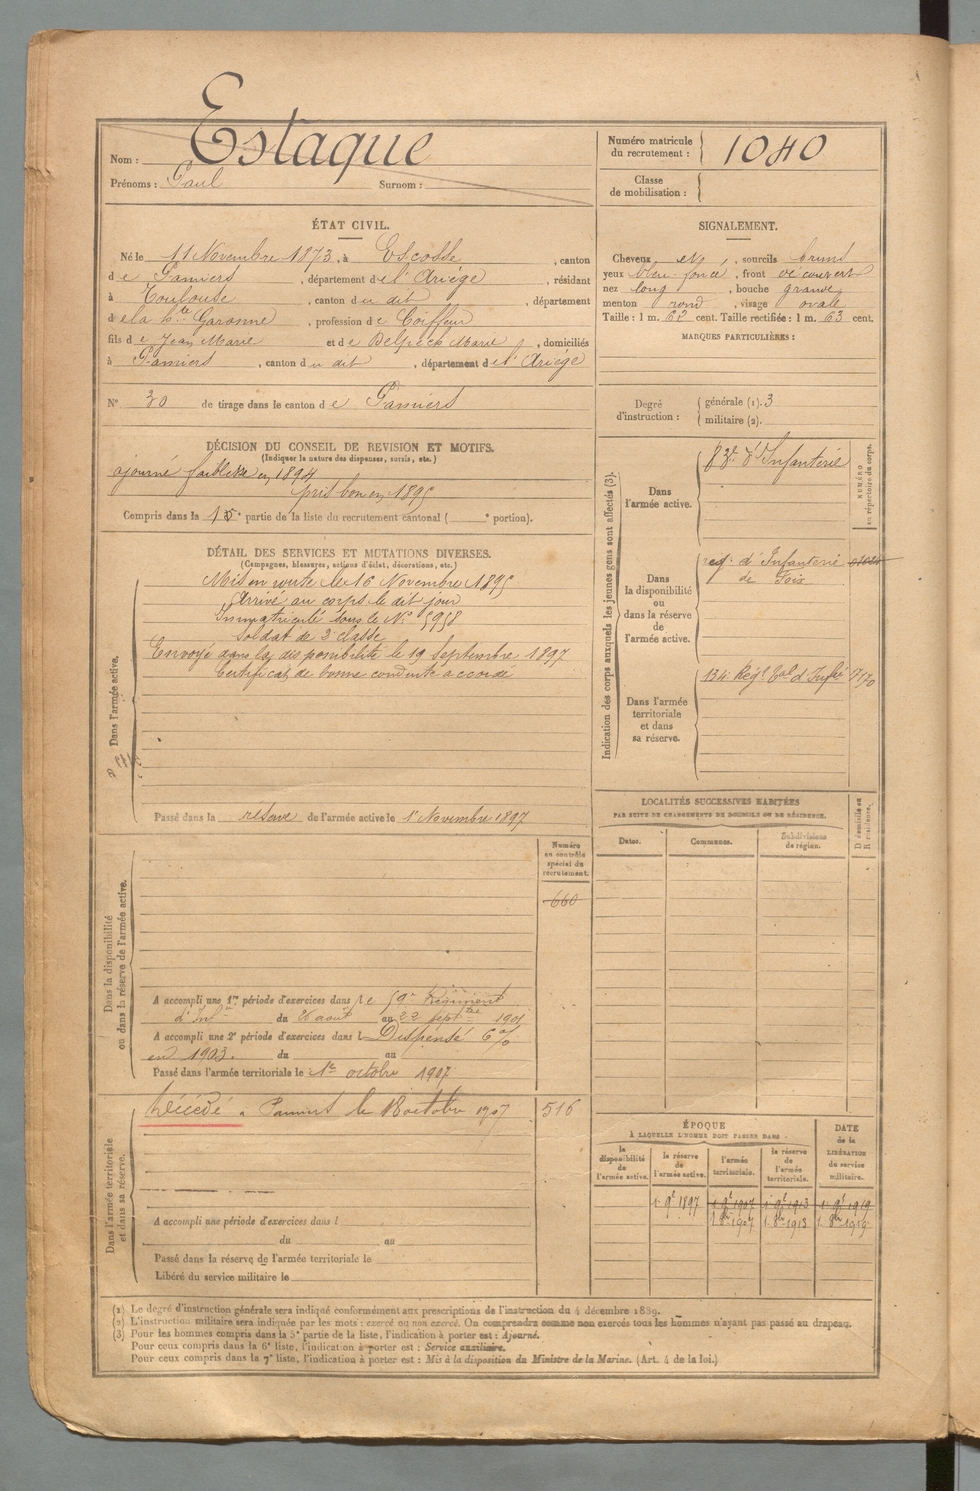 Nom : Estaque
Prénoms : Paul Surnom :
Numéro matricule
du recrutement : 1040
Classe
de mobilisation :
ÉTAT CIVIL.
Né le 11 Novembre 1873, à Escosse, canton
de Pamiers, département de l'Ariége, résidant
à Toulouse, canton du dit, département
de la hte Garonne, profession de Coiffeur
fils de Jean Marie et de Delpech Marie, domiciliés
à Pamiers, canton du dit, département de l'Ariége
N° 30 de tirage dans le canton de Pamiers
SIGNALEMENT.
Cheveux, sourcils bruns
yeux bleu foncé, front découvert
nez long, bouche grande
menton rond, visage ovale
Taille : 1 m. 62 cent. Taille rectifiée : 1 m. 63 cent.
MARQUES PARTICULIÈRES :
Degré
d'instruction :
générale (1). 3
militaire (2).
DÉCISION DU CONSEIL DE REVISION ET MOTIFS.
(Indiquer la nature des dispenses, sursis, etc.)
ajourné faiblesse en 1894
pris bon en 1895
Compris dans la partie de la liste du recrutement cantonal ( e portion).
DÉTAIL DES SERVICES ET MUTATIONS DIVERSES.
(Campagnes, blessures, actions d'éclat, décorations, etc.)
Dans l'armée active.
Mis en route le 16 Novembre 1895
Arrivé au corps le dit jour
Immatriculé sous le N° 5958
Soldat de 2e classe
Envoyé dans la disponibilité le 19 septembre 1897
Certificat de bonne conduite accordé
Passé dans la réserve de l'armée active le 1er Novembre 1897
Indication des corps auxquels les jeunes gens sont affectés (3).
NUMÉRO
au répertoire du corps.
Dans
l'armée active.
d'Infanterie
Dans
la disponibilité
ou
dans la réserve
de
l'armée active.
reg. d'Infanterie
de Foix
Dans l'armée
territoriale
et dans
sa réserve.
134e Regt tal d'Infie 7170
LOCALITÉS SUCCESSIVES HABITÉES
PAR SUITE DE CHANGEMENTS DE DOMICILE OU DE RÉSIDENCE.
Dates.
Communes.
Subdivisions
de région.
D domicile ou
R résidence.
Dans la disponibilité
ou dans la réserve de l'armée active.
Numéro
au contrôle
spécial du
recrutement.
660
A accompli une 1re période d'exercices dans le 59e Régiment
d'Infie du 26 août au 22 septbre 1901
A accompli une 2e période d'exercices dans l Dispensé 6 %
en 1903. du au
Passé dans l'armée territoriale le 1er octobre 1907
Dans l'armée territoriale
et dans sa réserve.
Décédé à Pamiers le 18 octobre 1907
516
A accompli une période d'exercices dans l
du au
Passé dans la réserve de l'armée territoriale le
Libéré du service militaire le
ÉPOQUE
À LAQUELLE L'HOMME DOIT PASSER DANS
DATE
de la
LIBÉRATION
du service
militaire.
la
disponibilité
de
l'armée active.
la réserve
de
l'armée active.
l'armée
territoriale.
la réserve
de
l'armée
territoriale.
1. 9e 1897 1. 9e 1907 1. 9e 1913 1. 9e 1919
1. 8bre 1907 1. 8bre 1913 1. 8bre 1919
(1) Le degré d'instruction générale sera indiqué conformément aux prescriptions de l'instruction du 4 décembre 1889.
(2) L'instruction militaire sera indiquée par les mots : exercé ou non exercé. On comprendra comme non exercés tous les hommes n'ayant pas passé au drapeau.
(3) Pour les hommes compris dans la 5e partie de la liste, l'indication à porter est : Ajourné.
Pour ceux compris dans la 6e liste, l'indication à porter est : Service auxiliaire.
Pour ceux compris dans la 7e liste, l'indication à porter est : Mis à la disposition du Ministre de la Marine. (Art. 4 de la loi.)